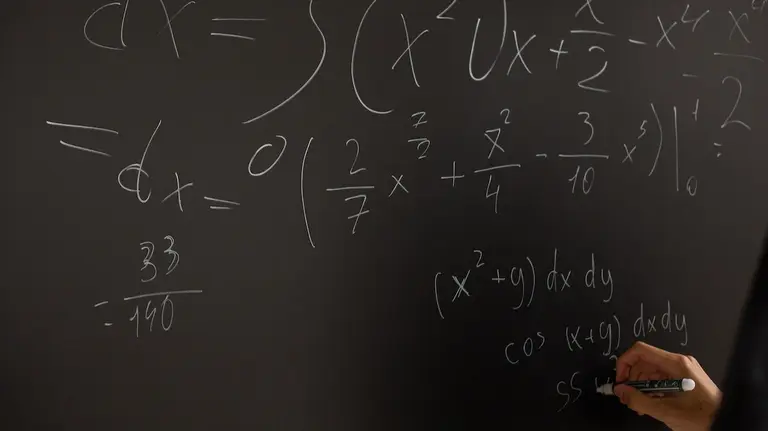 dx = ∫ (x² √x + x/2 - x⁴ - x⁴/2
= dx = 0 (2/7 x^(7/2) + x²/4 - 3/10 x⁵) |₀¹ =
= 33/140
(x² + y) dx dy
cos (x+y) dxdy
SS